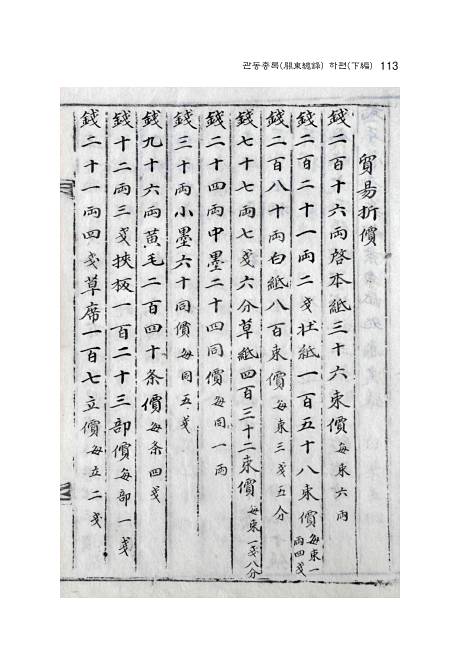 관동총록(關東總錄) 하편(下編) 113
貿易折價
錢二百十六両啓本紙三十六束價每束六両
錢二百二十一両二戔狀紙一百五十八束價每束一両四戔
錢二百八十両白紙八百束價每束三戔五分
錢七十七両七戔六分草紙四百三十二束價每束一戔八分
錢二十四両中墨二十四同價每同一両
錢三十両小墨六十同價每同五戔
錢九十六両黃毛二百四十条價每条四戔
錢十二両三戔挾板一百二十三部價每部一戔
錢二十一両四戔草席一百七立價每立二戔